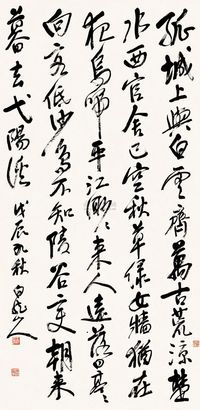 孤城上與白雲齊萬古荒涼楚
水西官舍已空秋草綠女牆猶在
夜烏啼平江渺渺來人遠落日亭亭
向客低沙鳥不知陵谷變朝來
暮去弋陽溪 戊辰秋